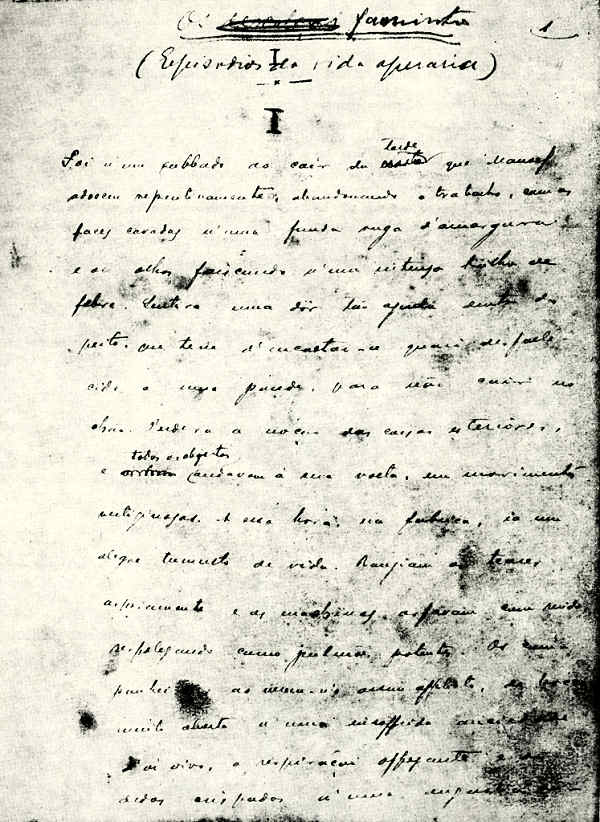 Os famintos 1
(Episodios da vida operaria)
I
Foi n'um sabbado ao cair da tarde que Manoel
adoeceu repentinamente, abandonando o trabalho, com as
faces cavadas n'uma funda ruga d'amargura
e os olhos faiscando n'um intenso brilho de
febre. Sentira uma dôr tão aguda dentro do
peito, que teve d'encostar-se quasi desfale-
cido a uma parede, para não cair no
chão. Perdera a noção das coisas exteriores,
e todos os objectos andavam á sua volta, em movimentos
vertiginosos. A essa hora, na fabrica, ia um
alegre tumulto de vida. Rangiam os teares
asperamente e as machinas arfavam com ruido
resfolegando como pulmões potentes. Os com-
panheiros ao verem-n'o assim afflicto, a bocca
muito aberta n'uma soffrida anciedade
a respiração offegante e os
dedos crispados n'uma